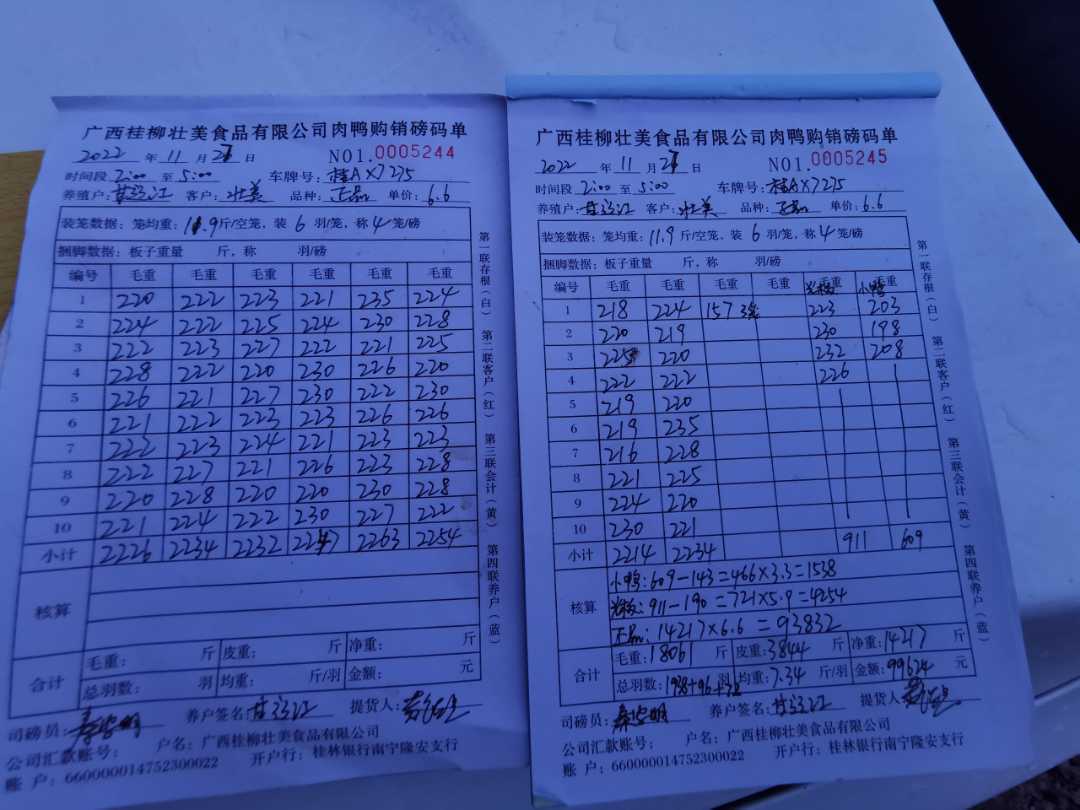 广西桂柳壮美食品有限公司肉鸭购销磅码单
2022 年 11 月 27 日 NO1.0005244
时间段 2:00 至 5:00 车牌号: 桂AX7275
养殖户: 客户: 壮美 品种: 正品 单价: 6.6
装笼数据: 笼均重: 11.9 斤/空笼, 装 6 羽/笼, 称 4 笼/磅
捆脚数据: 板子重量 斤, 称 羽/磅
编号 毛重 毛重 毛重 毛重 毛重 毛重
1 220 222 223 221 235 224
2 224 222 225 224 230 228
3 222 223 227 222 221 225
4 228 222 220 230 226 220
5 226 221 227 230 222 230
6 221 222 223 223 226 226
7 222 223 224 221 223 223
8 222 227 221 226 223 228
9 220 228 220 220 230 228
10 221 224 222 230 227 222
小计 2226 2234 2232 2247 2263 2254
核算
合计 毛重: 斤 皮重: 斤 净重: 斤
总羽数: 羽 均重: 斤/羽 金额: 元
司磅员: 养户签名: 提货人:
公司汇款账号: 户名: 广西桂柳壮美食品有限公司
账 户: 660000014752300022 开户行: 桂林银行南宁隆安支行
第一联存根(白) 第二联客户(红) 第三联会计(黄) 第四联养户(蓝)
广西桂柳壮美食品有限公司肉鸭购销磅码单
2022 年 11 月 27 日 NO1.0005245
时间段 2:00 至 5:00 车牌号: 桂AX7275
养殖户: 客户: 壮美 品种: 正品 单价: 6.6
装笼数据: 笼均重: 11.9 斤/空笼, 装 6 羽/笼, 称 4 笼/磅
捆脚数据: 板子重量 斤, 称 羽/磅
编号 毛重 毛重 毛重 毛重 毛重 毛重
小鸭
1 218 224 157 3笼 223 203
2 220 219 230 198
3 225 220 232 208
4 222 222 226
5 219 220
6 219 235
7 216 228
8 221 225
9 224 220
10 230 221
小计 2214 2234 911 609
核算 小鸭: 609-143=466×3.3=1538
911-190=721×5.9=4254
正品: 14217×6.6=93832
合计 毛重: 18061 斤 皮重: 3844 斤 净重: 14217 斤
总羽数: 1938+96+72 羽 均重: 7.34 斤/羽 金额: 99624 元
司磅员: 养户签名: 提货人:
公司汇款账号: 户名: 广西桂柳壮美食品有限公司
账 户: 660000014752300022 开户行: 桂林银行南宁隆安支行
第一联存根(白) 第二联客户(红) 第三联会计(黄) 第四联养户(蓝)